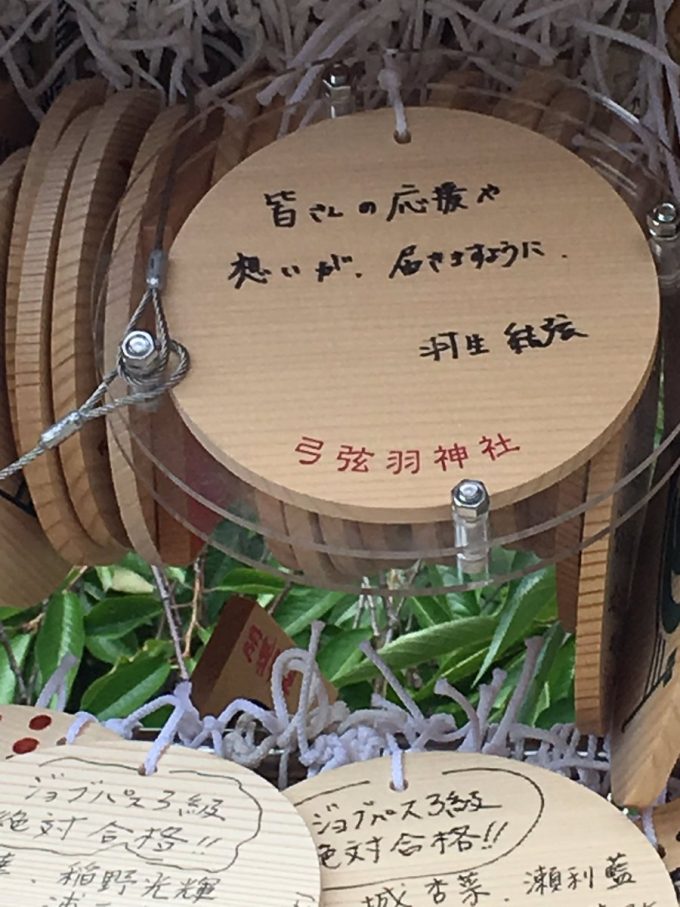 皆さんの応援や
想いが、届きますように.
羽生 結弦
弓弦羽神社
ジョブパス3級
絶対合格!!
稲野光輝
ジョブパス3級
絶対合格!!
城 杏菜、瀬利藍